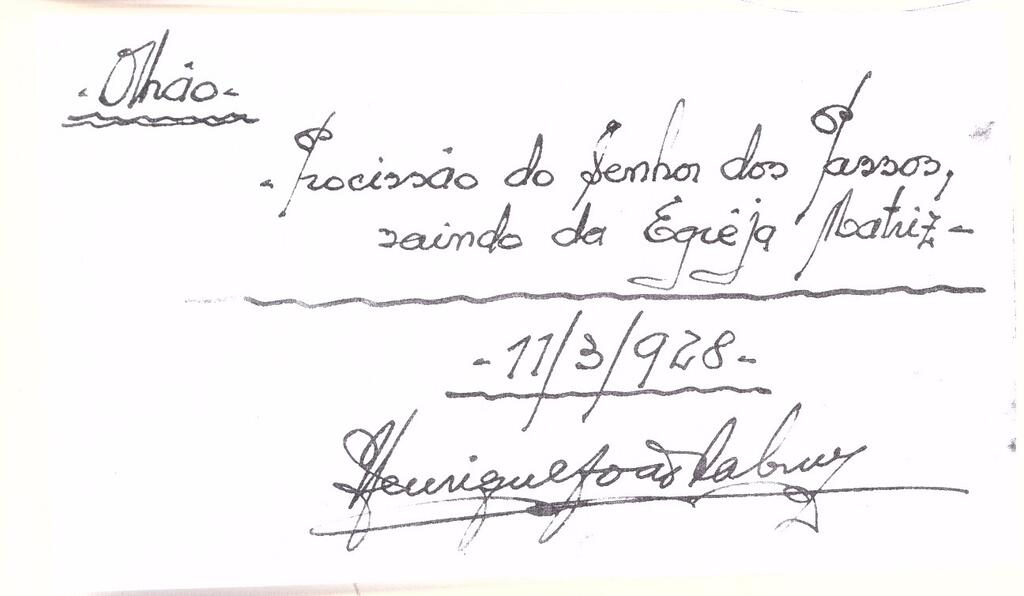 - Olhão -
- Procissão do Senhor dos Passos,
saindo da Egrêja Matriz -
- 11/3/928 -
Henrique João